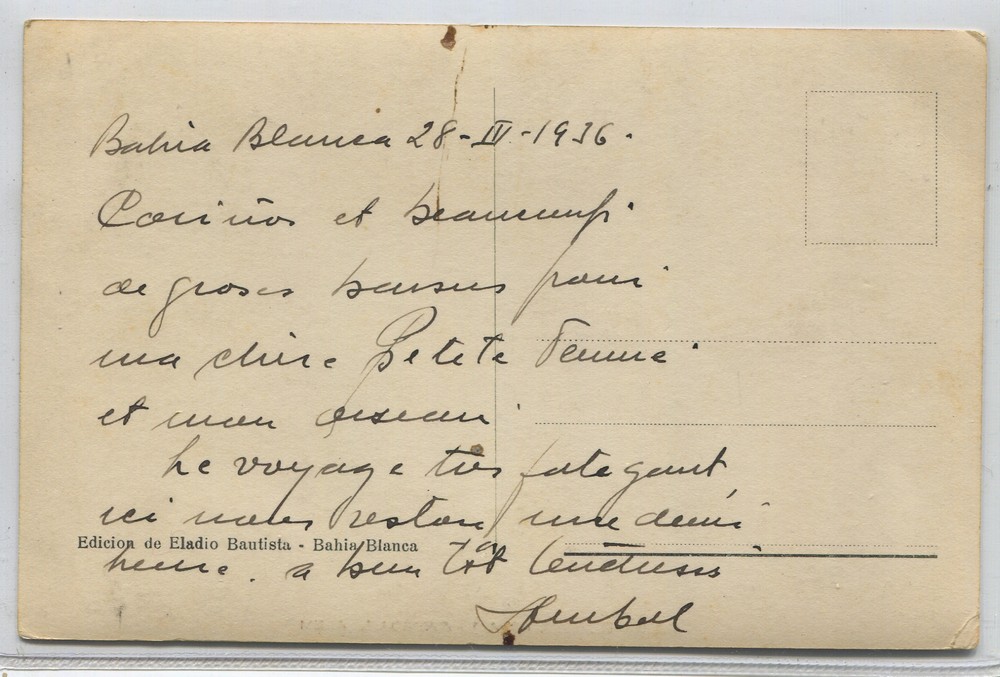 Bahia Blanca 28-III-1936.
Cariños et beaucoup
de groses baisers pour
ma chere Petete Femme
et mon oiseau
Le voyage tres fategant,
ici nous restons une demi
Edicion de Eladio Bautista - Bahia Blanca
heure. a bien tôt tendresses